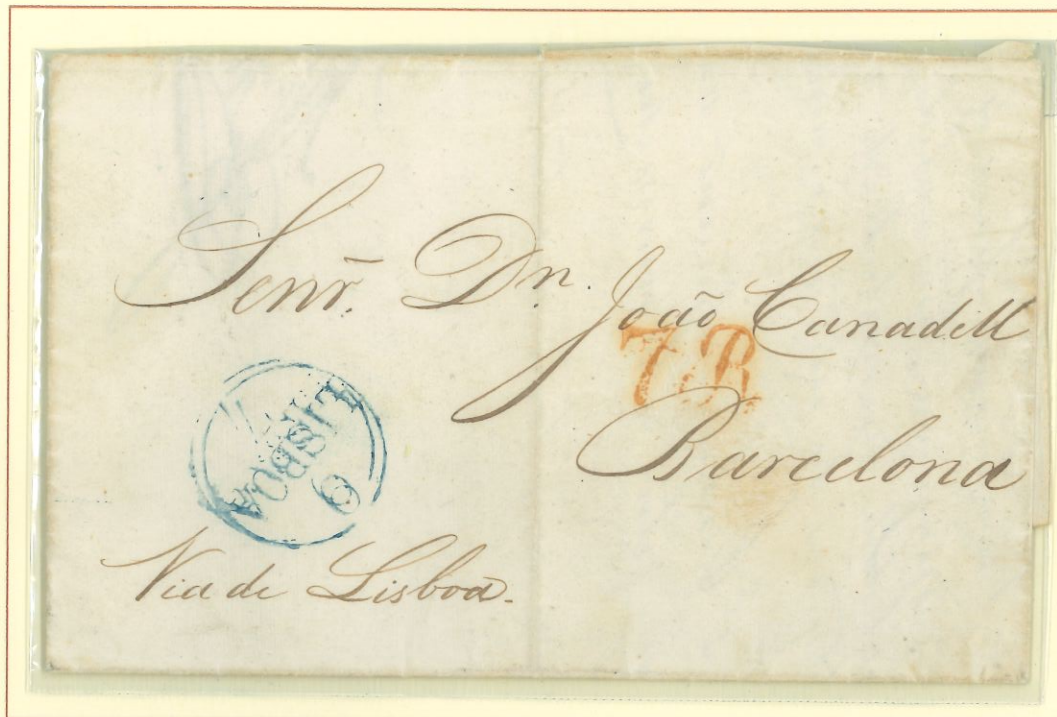 Senr. Dn. João Canadell
7 R
Barcelona
LISBOA
9
Via de Lisboa.